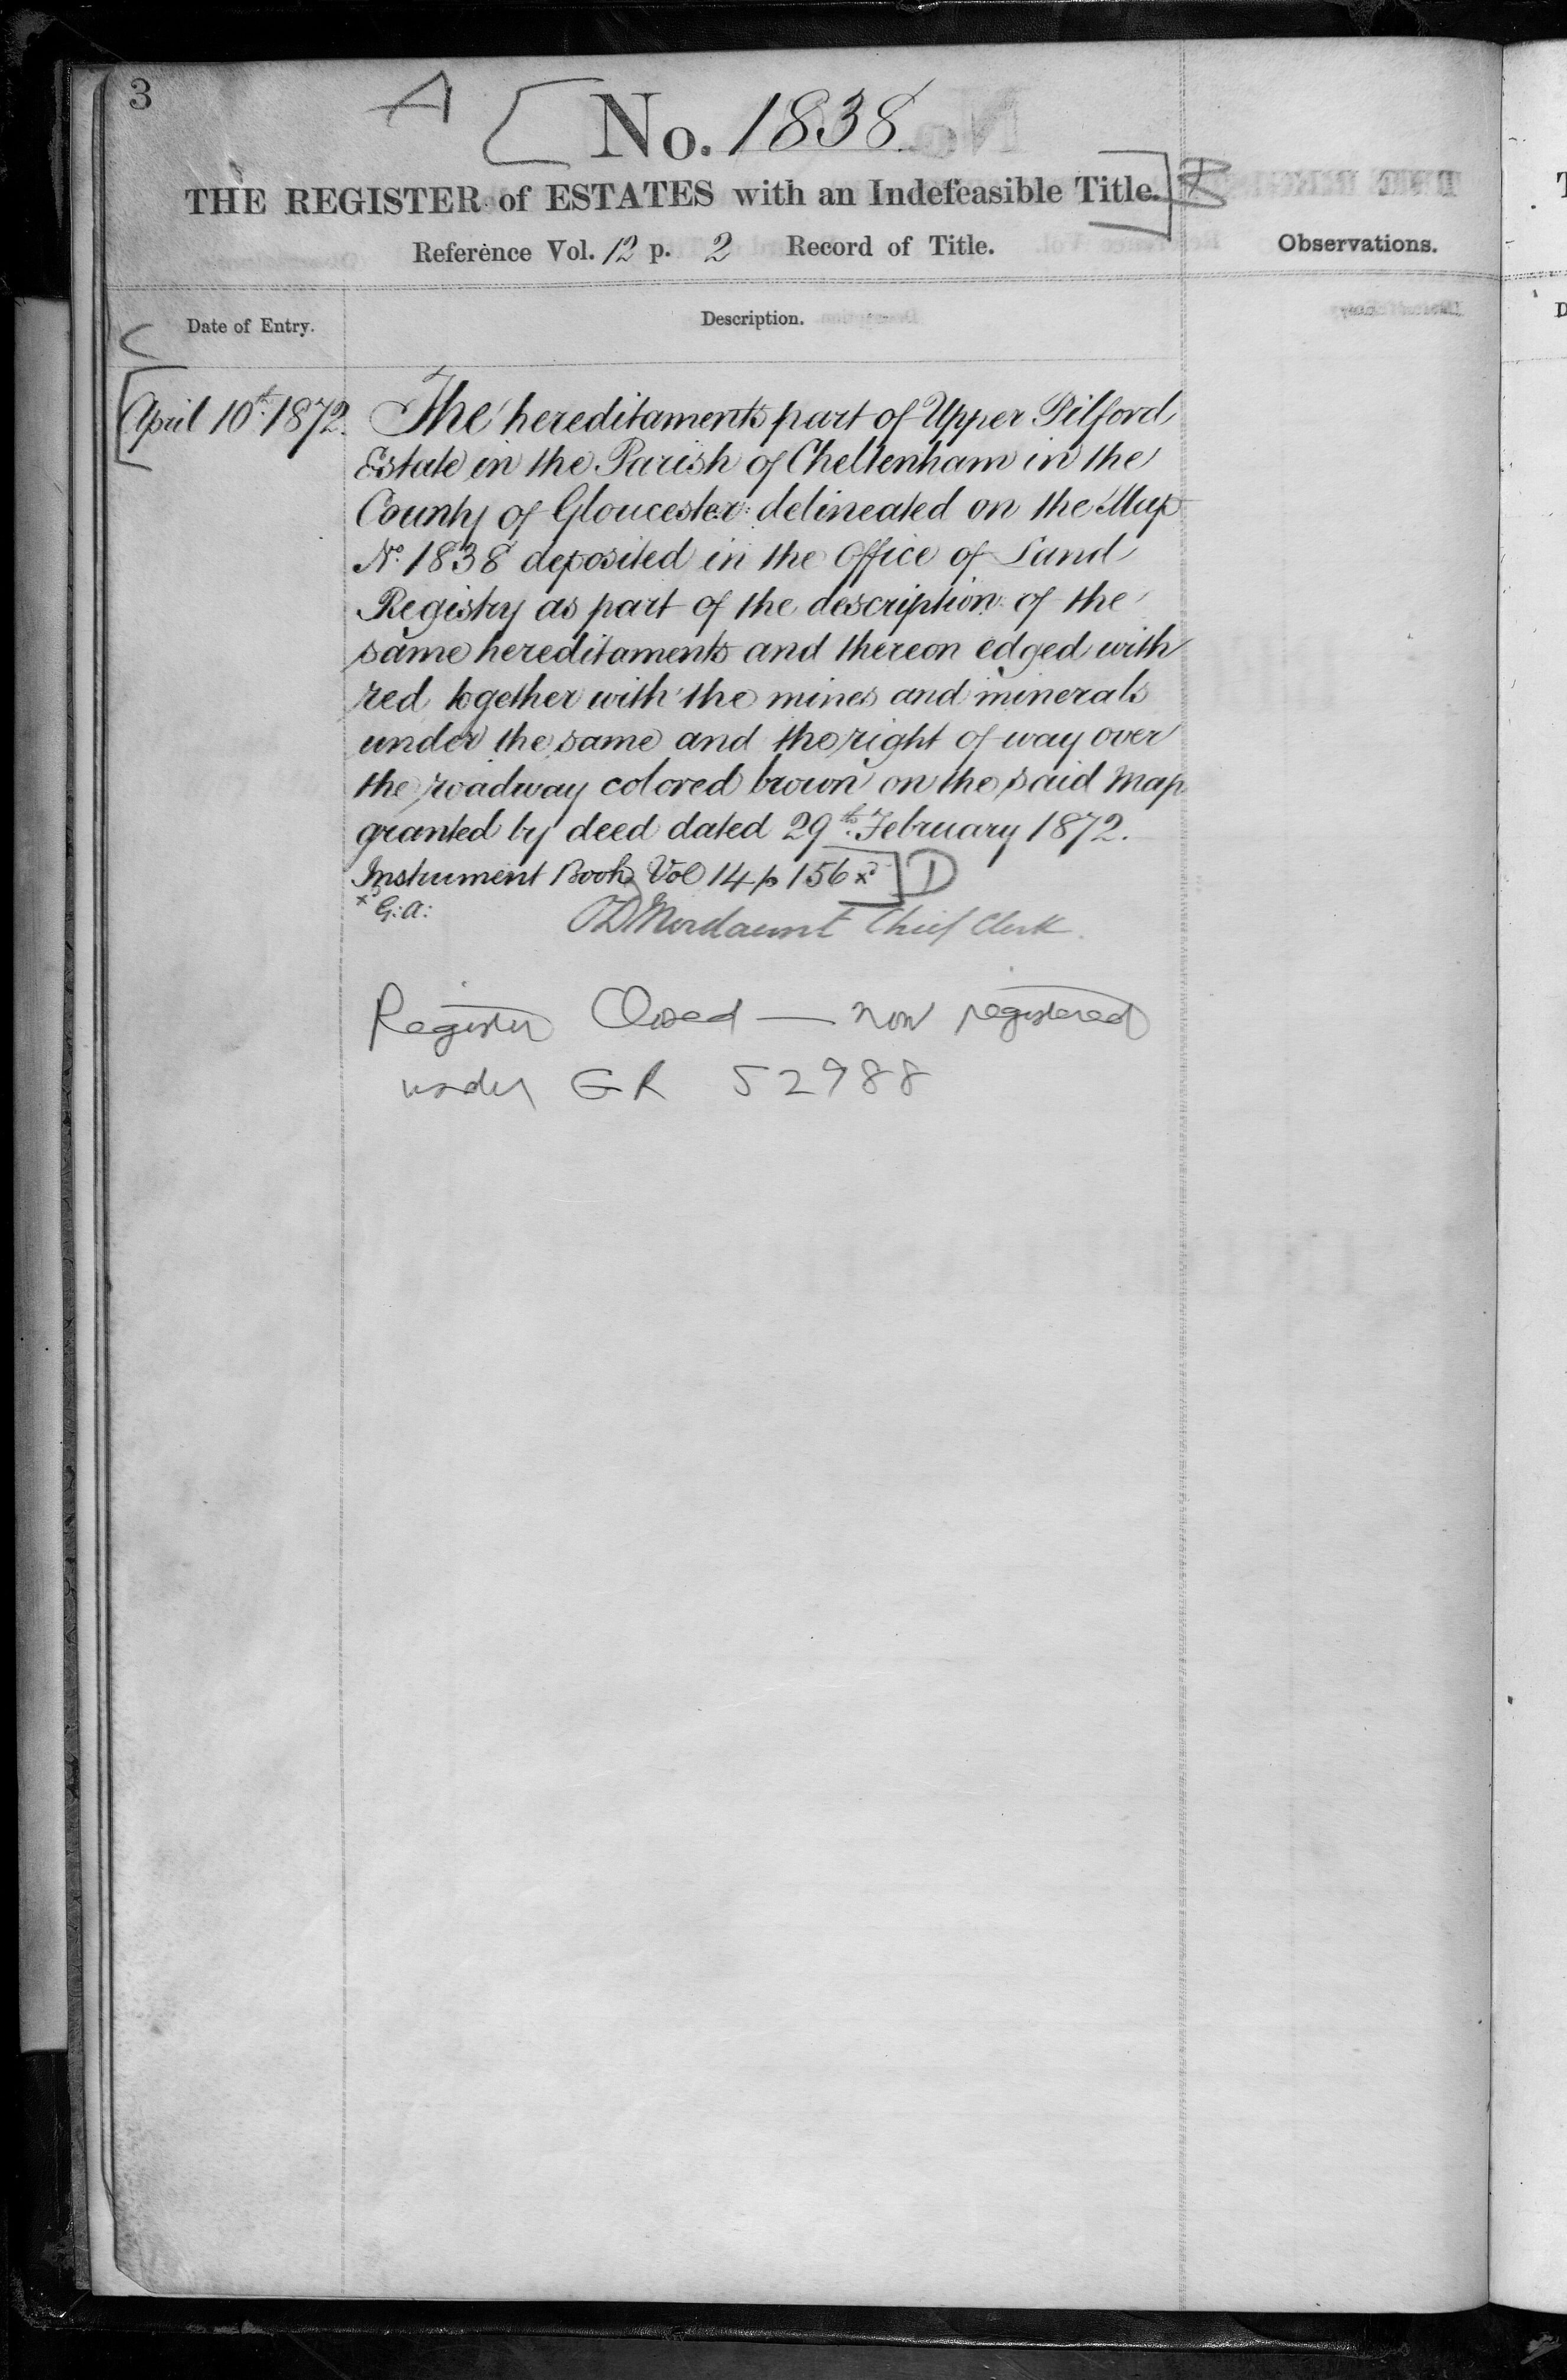 3
A
No. 1838.
THE REGISTER of ESTATES with an Indefeasible Title. B
Reference Vol. 12 p. 2 Record of Title.
Observations.
C Date of Entry.
Description.
April 10th. 1872. The hereditaments part of Upper Pilford
Estate in the Parish of Cheltenham in the
County of Gloucester delineated on the Map
No. 1838 deposited in the Office of Land
Registry as part of the description of the
same hereditaments and thereon edged with
red together with the mines and minerals
under the same and the right of way over
the roadway colored brown on the said Map
granted by deed dated 29th. February 1872.
Instrument Book Vol 14 p 156 x D
x G: A:
Mordaunt Chief Clerk.
Register Closed — now registered
under GR 52988